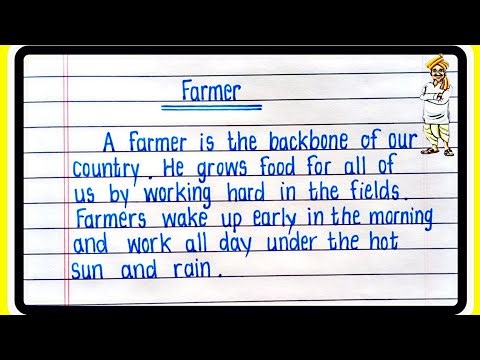 Farmer
A farmer is the backbone of our
country. He grows food for all of
us by working hard in the fields.
Farmers wake up early in the morning
and work all day under the hot
sun and rain.